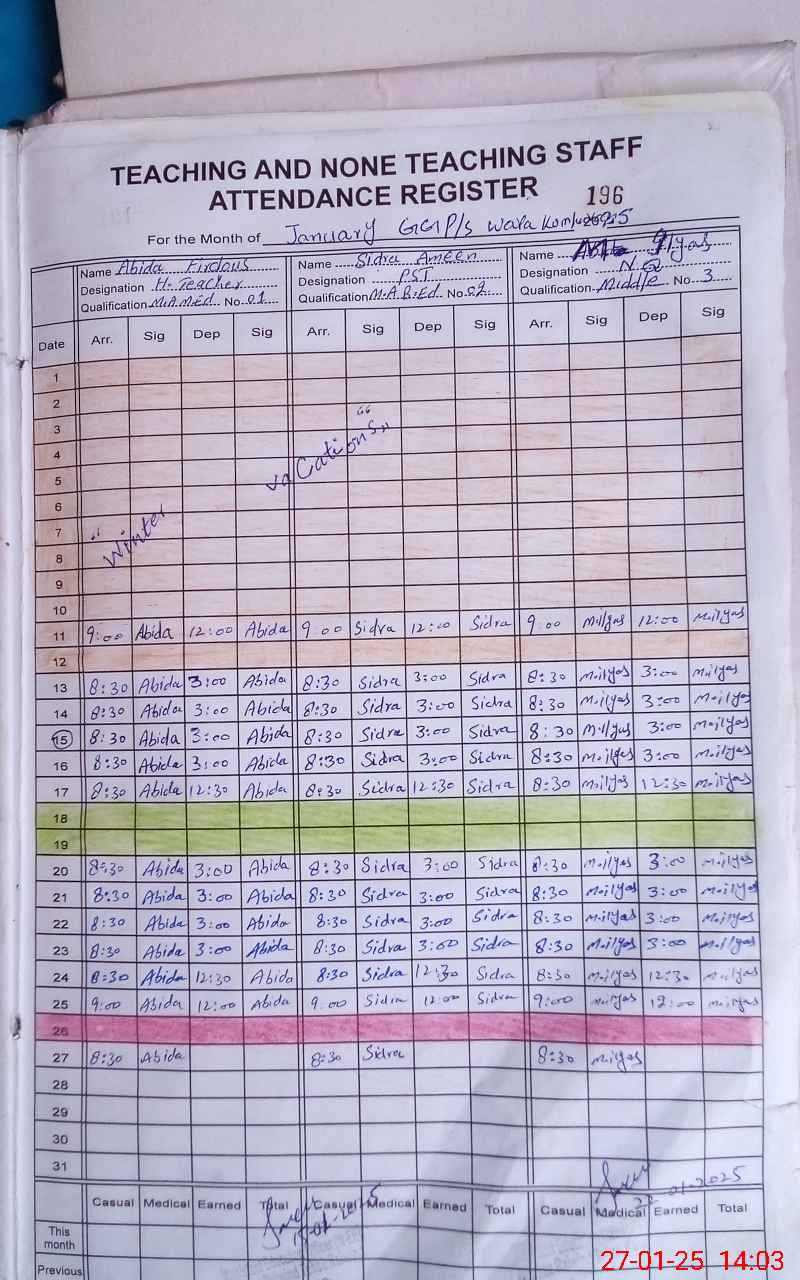 TEACHING AND NONE TEACHING STAFF
ATTENDANCE REGISTER 196
For the Month of January GGP/s wara
Name Abida Firdous Name Sidra Ameen Name Ilyas
Designation H. Teacher Designation PST Designation N.Q
Qualification M.A M.Ed No. 01 Qualification M.A B.Ed No. 02 Qualification Middle No. 3
Date Arr. Sig Dep Sig Arr. Sig Dep Sig Arr. Sig Dep Sig
1
2
3
4
5
6
7
8
9
10
"Winter vacations"
11 9:00 Abida 12:00 Abida 9:00 Sidra 12:00 Sidra 9:00 M.ilyas 12:00 M.ilyas
12
13 8:30 Abida 3:00 Abida 8:30 Sidra 3:00 Sidra 8:30 M.ilyas 3:00 M.ilyas
14 8:30 Abida 3:00 Abida 8:30 Sidra 3:00 Sidra 8:30 M.ilyas 3:00 M.ilyas
15 8:30 Abida 3:00 Abida 8:30 Sidra 3:00 Sidra 8:30 M.ilyas 3:00 M.ilyas
16 8:30 Abida 3:00 Abida 8:30 Sidra 3:00 Sidra 8:30 M.ilyas 3:00 M.ilyas
17 8:30 Abida 12:30 Abida 8:30 Sidra 12:30 Sidra 8:30 M.ilyas 12:30 M.ilyas
18
19
20 8:30 Abida 3:00 Abida 8:30 Sidra 3:00 Sidra 8:30 M.ilyas 3:00 M.ilyas
21 8:30 Abida 3:00 Abida 8:30 Sidra 3:00 Sidra 8:30 M.ilyas 3:00 M.ilyas
22 8:30 Abida 3:00 Abida 8:30 Sidra 3:00 Sidra 8:30 M.ilyas 3:00 M.ilyas
23 8:30 Abida 3:00 Abida 8:30 Sidra 3:00 Sidra 8:30 M.ilyas 3:00 M.ilyas
24 8:30 Abida 12:30 Abida 8:30 Sidra 12:30 Sidra 8:30 M.ilyas 12:30 M.ilyas
25 9:00 Abida 12:00 Abida 9:00 Sidra 12:00 Sidra 9:00 M.ilyas 12:00 M.ilyas
26
27 8:30 Abida 8:30 Sidra 8:30 M.ilyas
28
29
30
31
Casual Medical Earned Total Casual Medical Earned Total Casual Medical Earned Total
This month
Previous
27-01-25 14:03